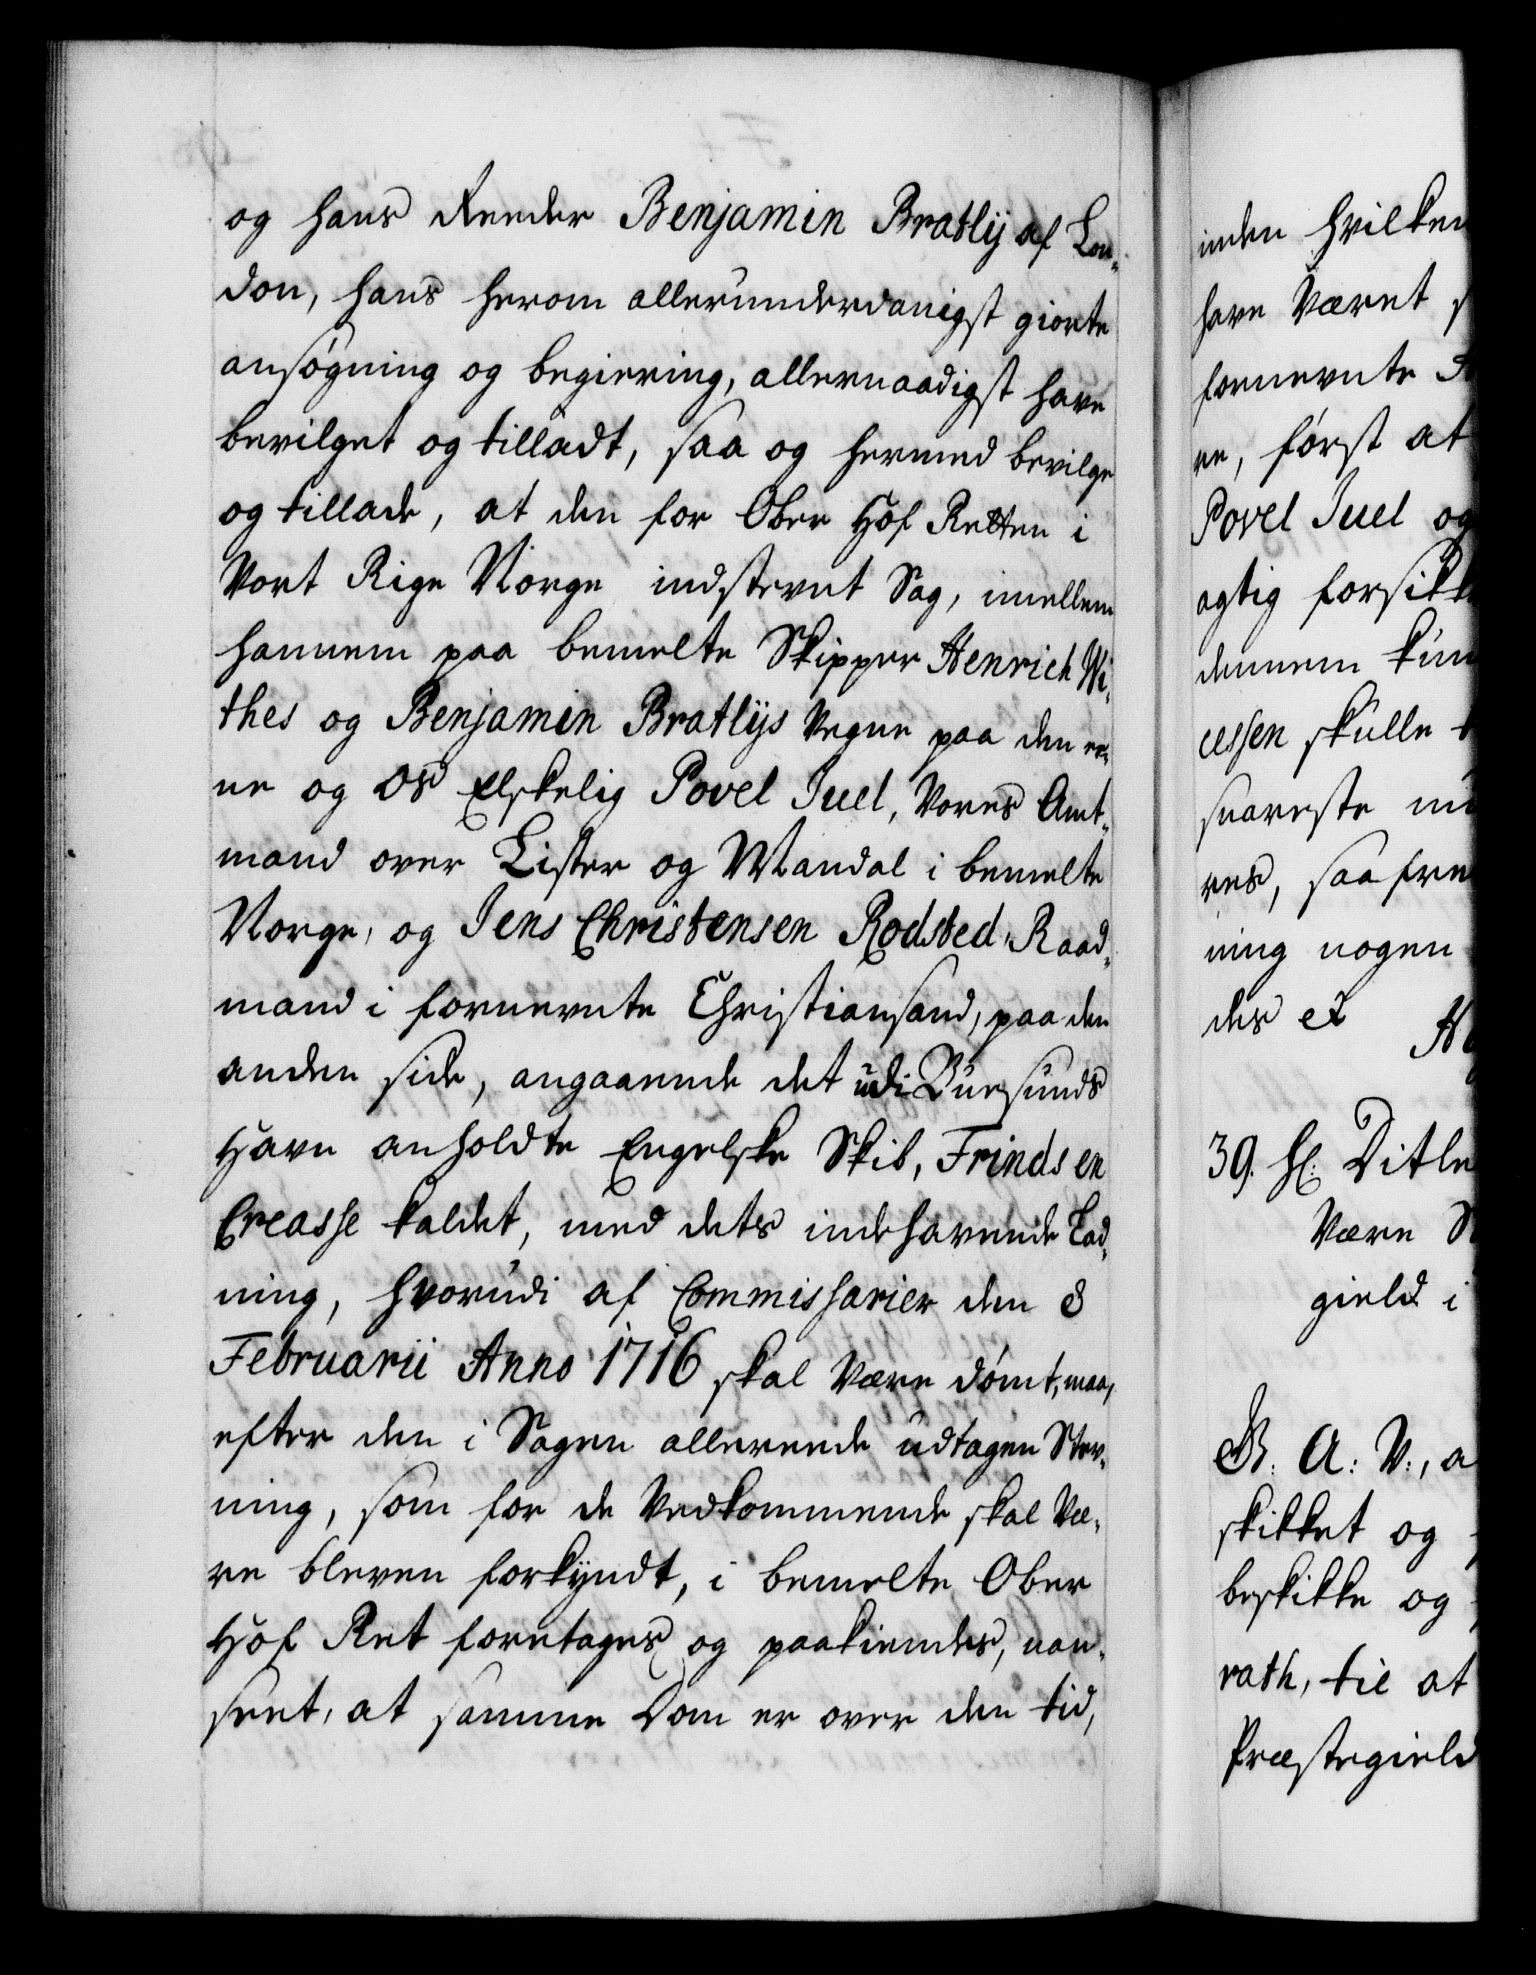 og hans Reeder Benjamin Bratlij af Lon¬
don, hans herom allerunderdanigst giorte
ansøgning og begiering, allernaadigst have
bevilget og tilladt, saa og hermed bevilge
og tillade, at den for Ober Hof Retten i
Vort Rige Norge indstevnt Sag, imellem
hannem paa bemelte Skipper Henrich Wi¬
thes og Benjamin Bratlijs Vegne paa den ee¬
ne og OS Elskelig Povel Juel, Vores Amt¬
mand over Lister og Mandal i bemelte
Norge, og Jens Christensen Rodsted, Raad¬
mand i fornevnte Christiansand, paa den
anden side, angaaende det udi Buesunds
Havn anholdte Engelske Skib, Frinds en
Creasse kaldet, med dets indehavende Lad¬
ning, hvorudi af Commissarier den 8
Februarii Anno 1716 skal Være dømt, maa,
efter den i Sagen allereede udtagen Stev¬
ning, som for de Vedkommende skal Væ¬
re bleven forkyndt, i bemelte Ober
Hof Ret foretages og paakiendes, uan¬
seet, at samme Dom er over den tid,
inden hvilken
have Været
fornevnte
re, først at
Povel Juel og
agtig forsikk
dennem kun
cessen skulle
snareste
res, saafre
ning nogen
des et
39. Hr: Ditle
Være
gield i
G. A: V:, a
skikket og
beskikke og
rath, til at
Præstegield